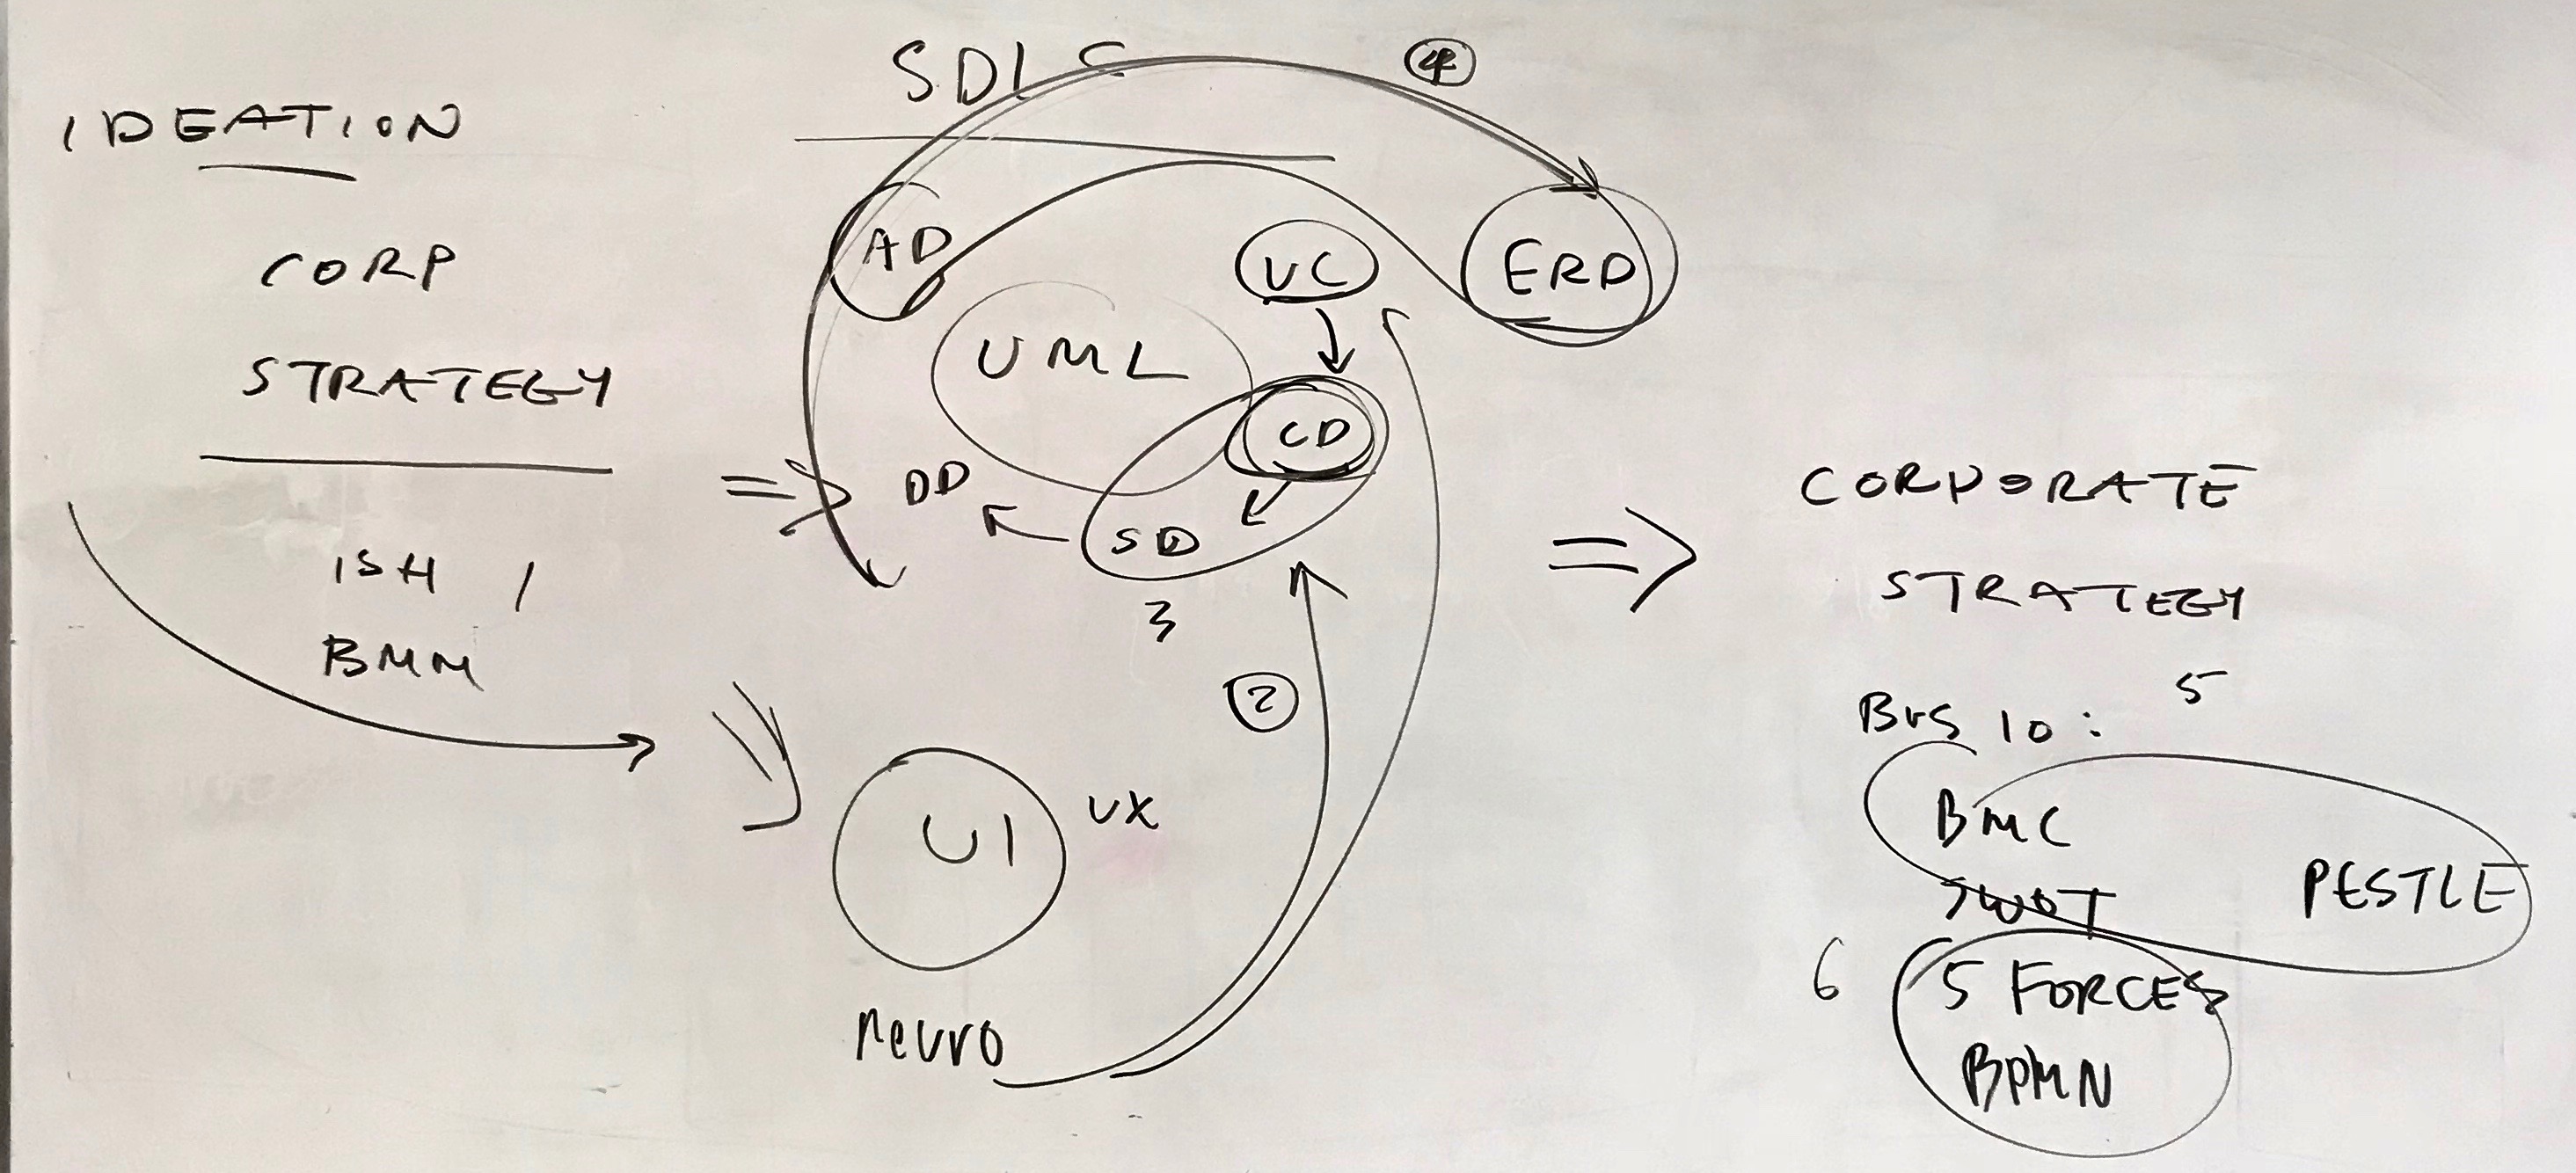 IDEATION
CORP
STRATEGY
ISH /
BMM
SDLC
4
AD
UC
ERD
UML
CD
DD
SD
3
2
UI
UX
neuro
CORPORATE
STRATEGY
5
BUS 10:
BMC
SWOT
PESTLE
6
5 FORCES
BPMN